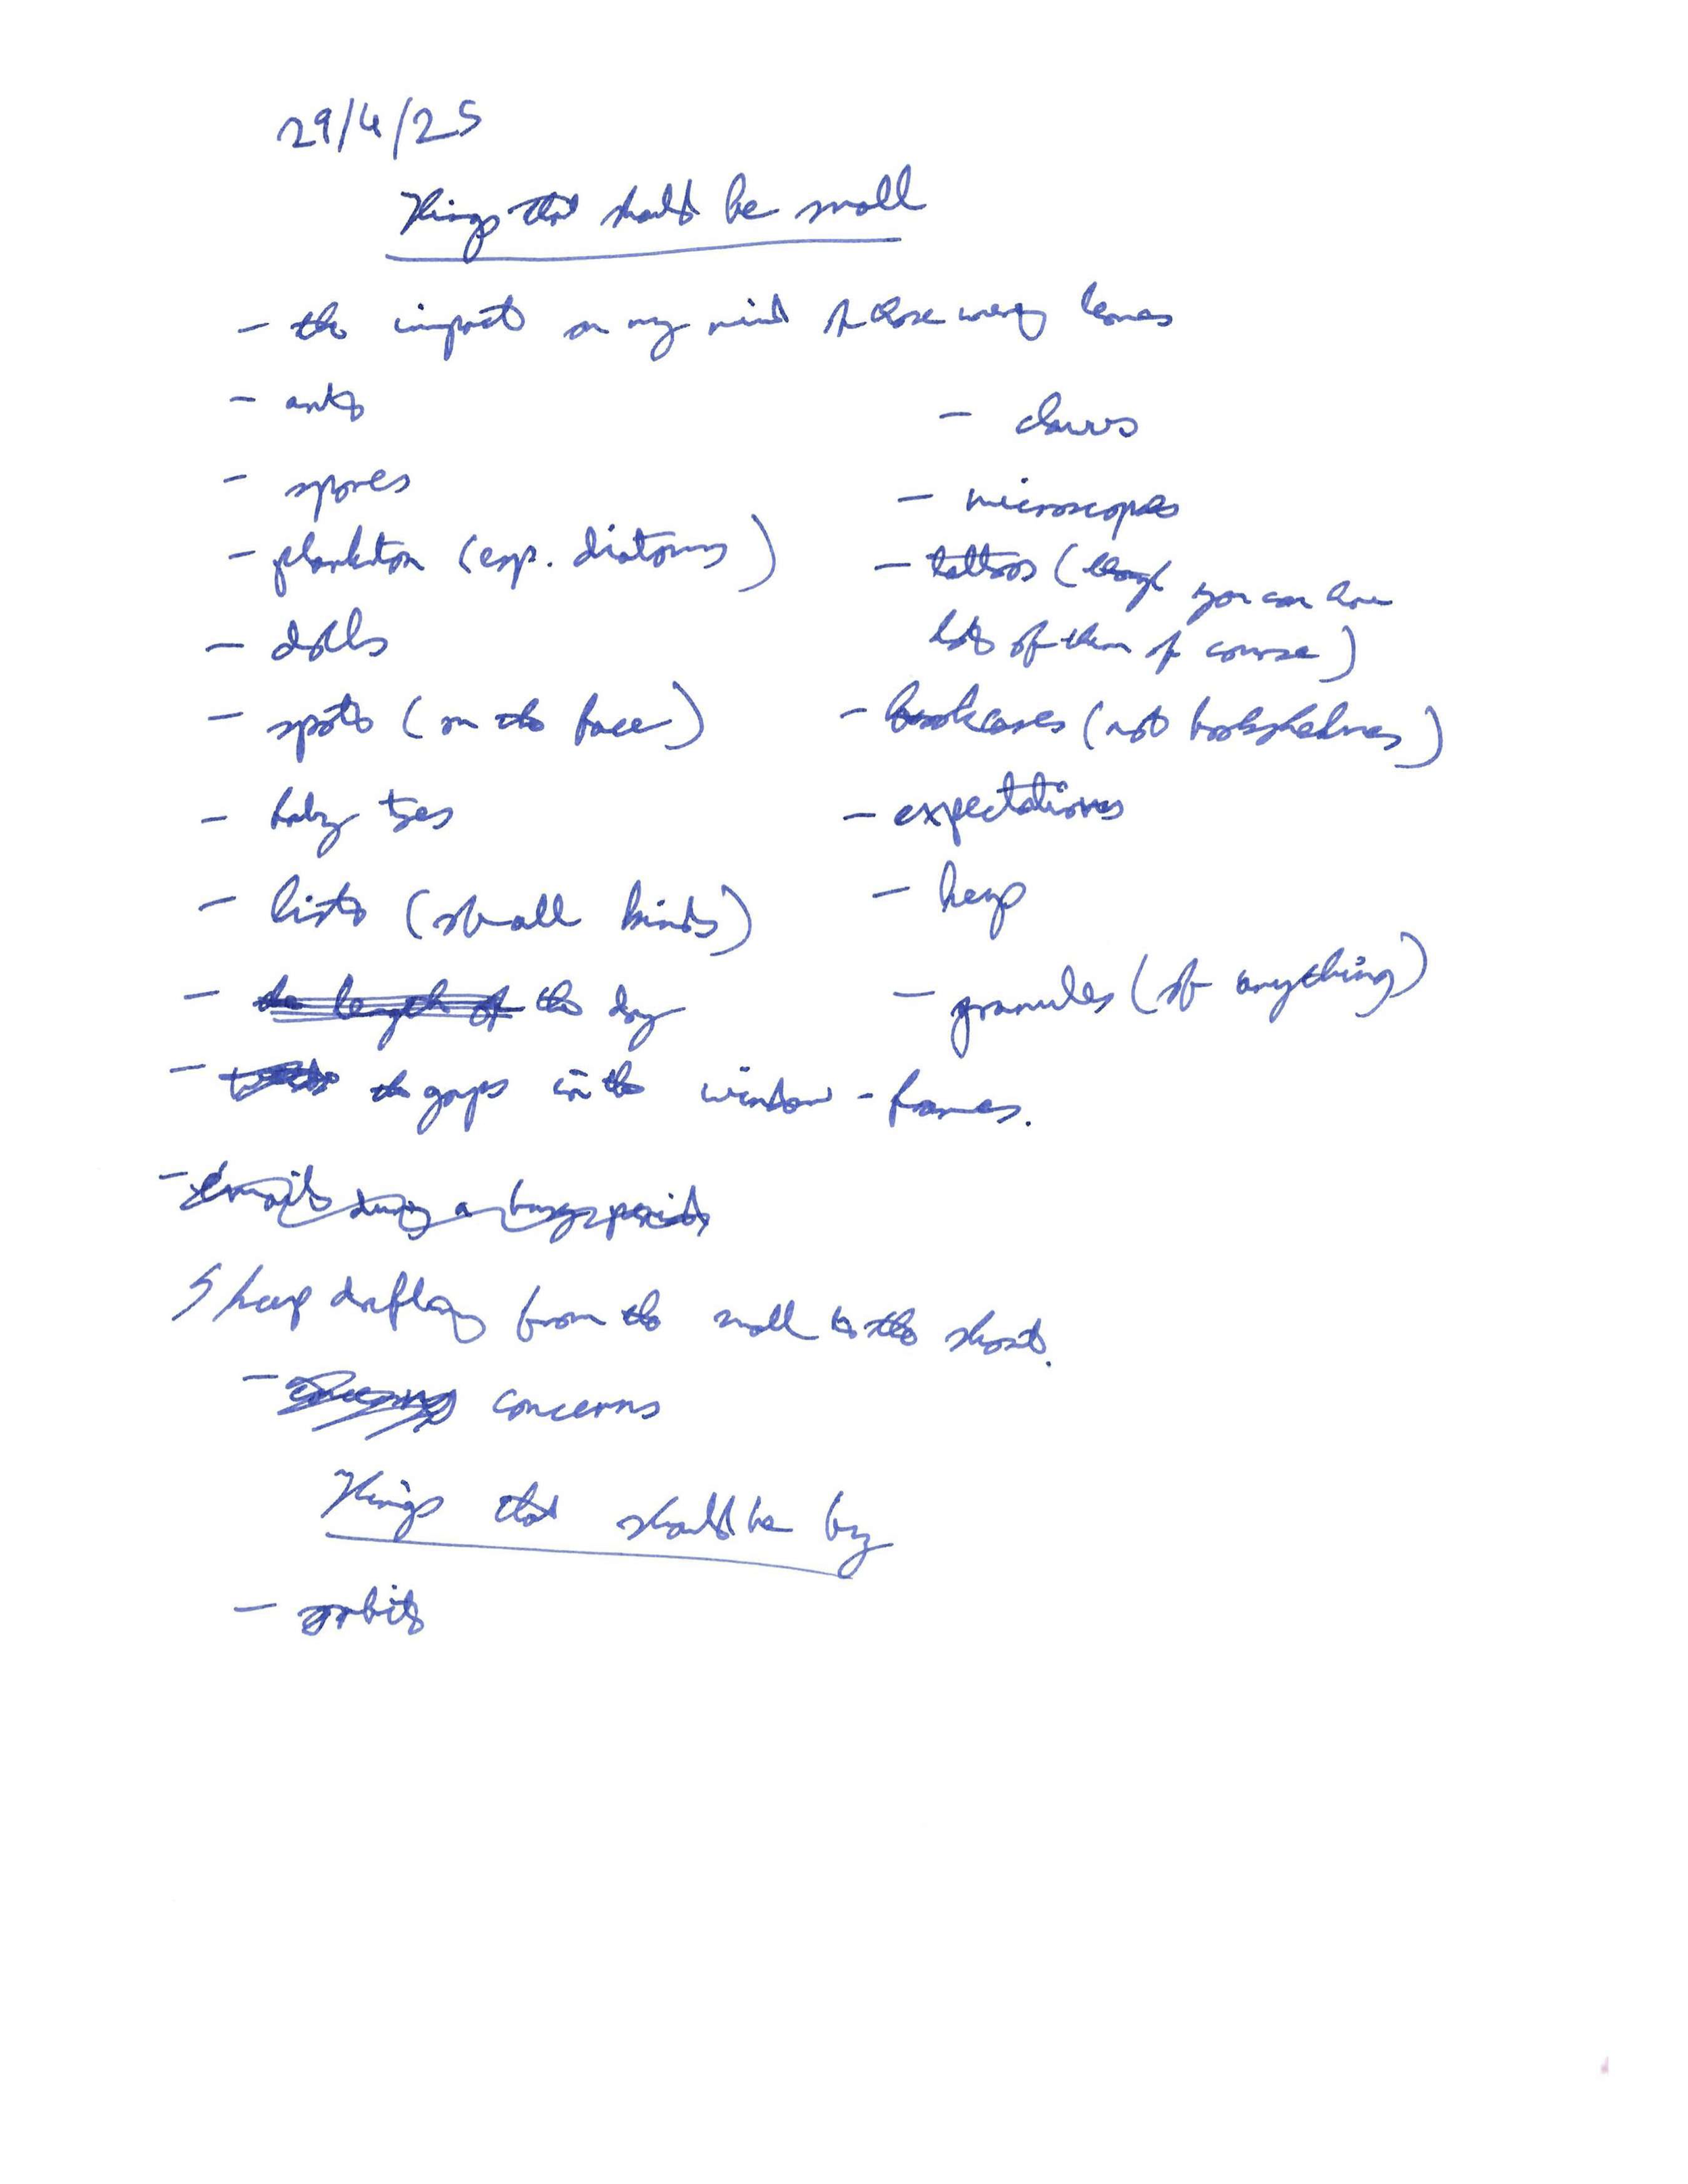 29/4/25
Things that should be small
- the impact on my mind of those wavy
- ants
- spores
- plankton (esp. diatoms)
- dolls
- spots (on the face)
- baby toes
- lists (small kinds)
- the length of the day
- the gaps in the window-frames.
- emails during a busy period
I keep drifting from the small to the short.
- concerns
- claws
- microscopes
- tattoos (though you can have
lots of them of course)
- bookcases (not bookshelves)
- expectations
-
- granules (of anything)
Things that should be big
- orbits